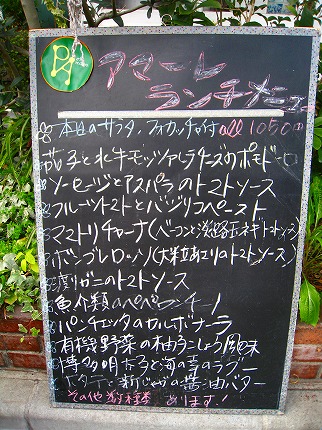 アマート
ランチメニュー
本日のサラダ、フォカッチャ付 all 1050円
茄子と水牛モッツァレラチーズのポモドーロ
ソーセージとアスパラのトマトソース
フルーツトマトとバジリコペースト
アマトリチャーナ(ベーコンと淡路玉ネギトマトソース)
ボンゴレロッソ(大粒あさりのトマトソース)
渡りガニのトマトソース
魚介類のペペロンチーノ
パンチェッタのカルボナーラ
有機野菜の柚子こしょう風味
博多明太子と海の幸のラグー
ホタテと新じゃがの醤油バター
その他数種 あります!